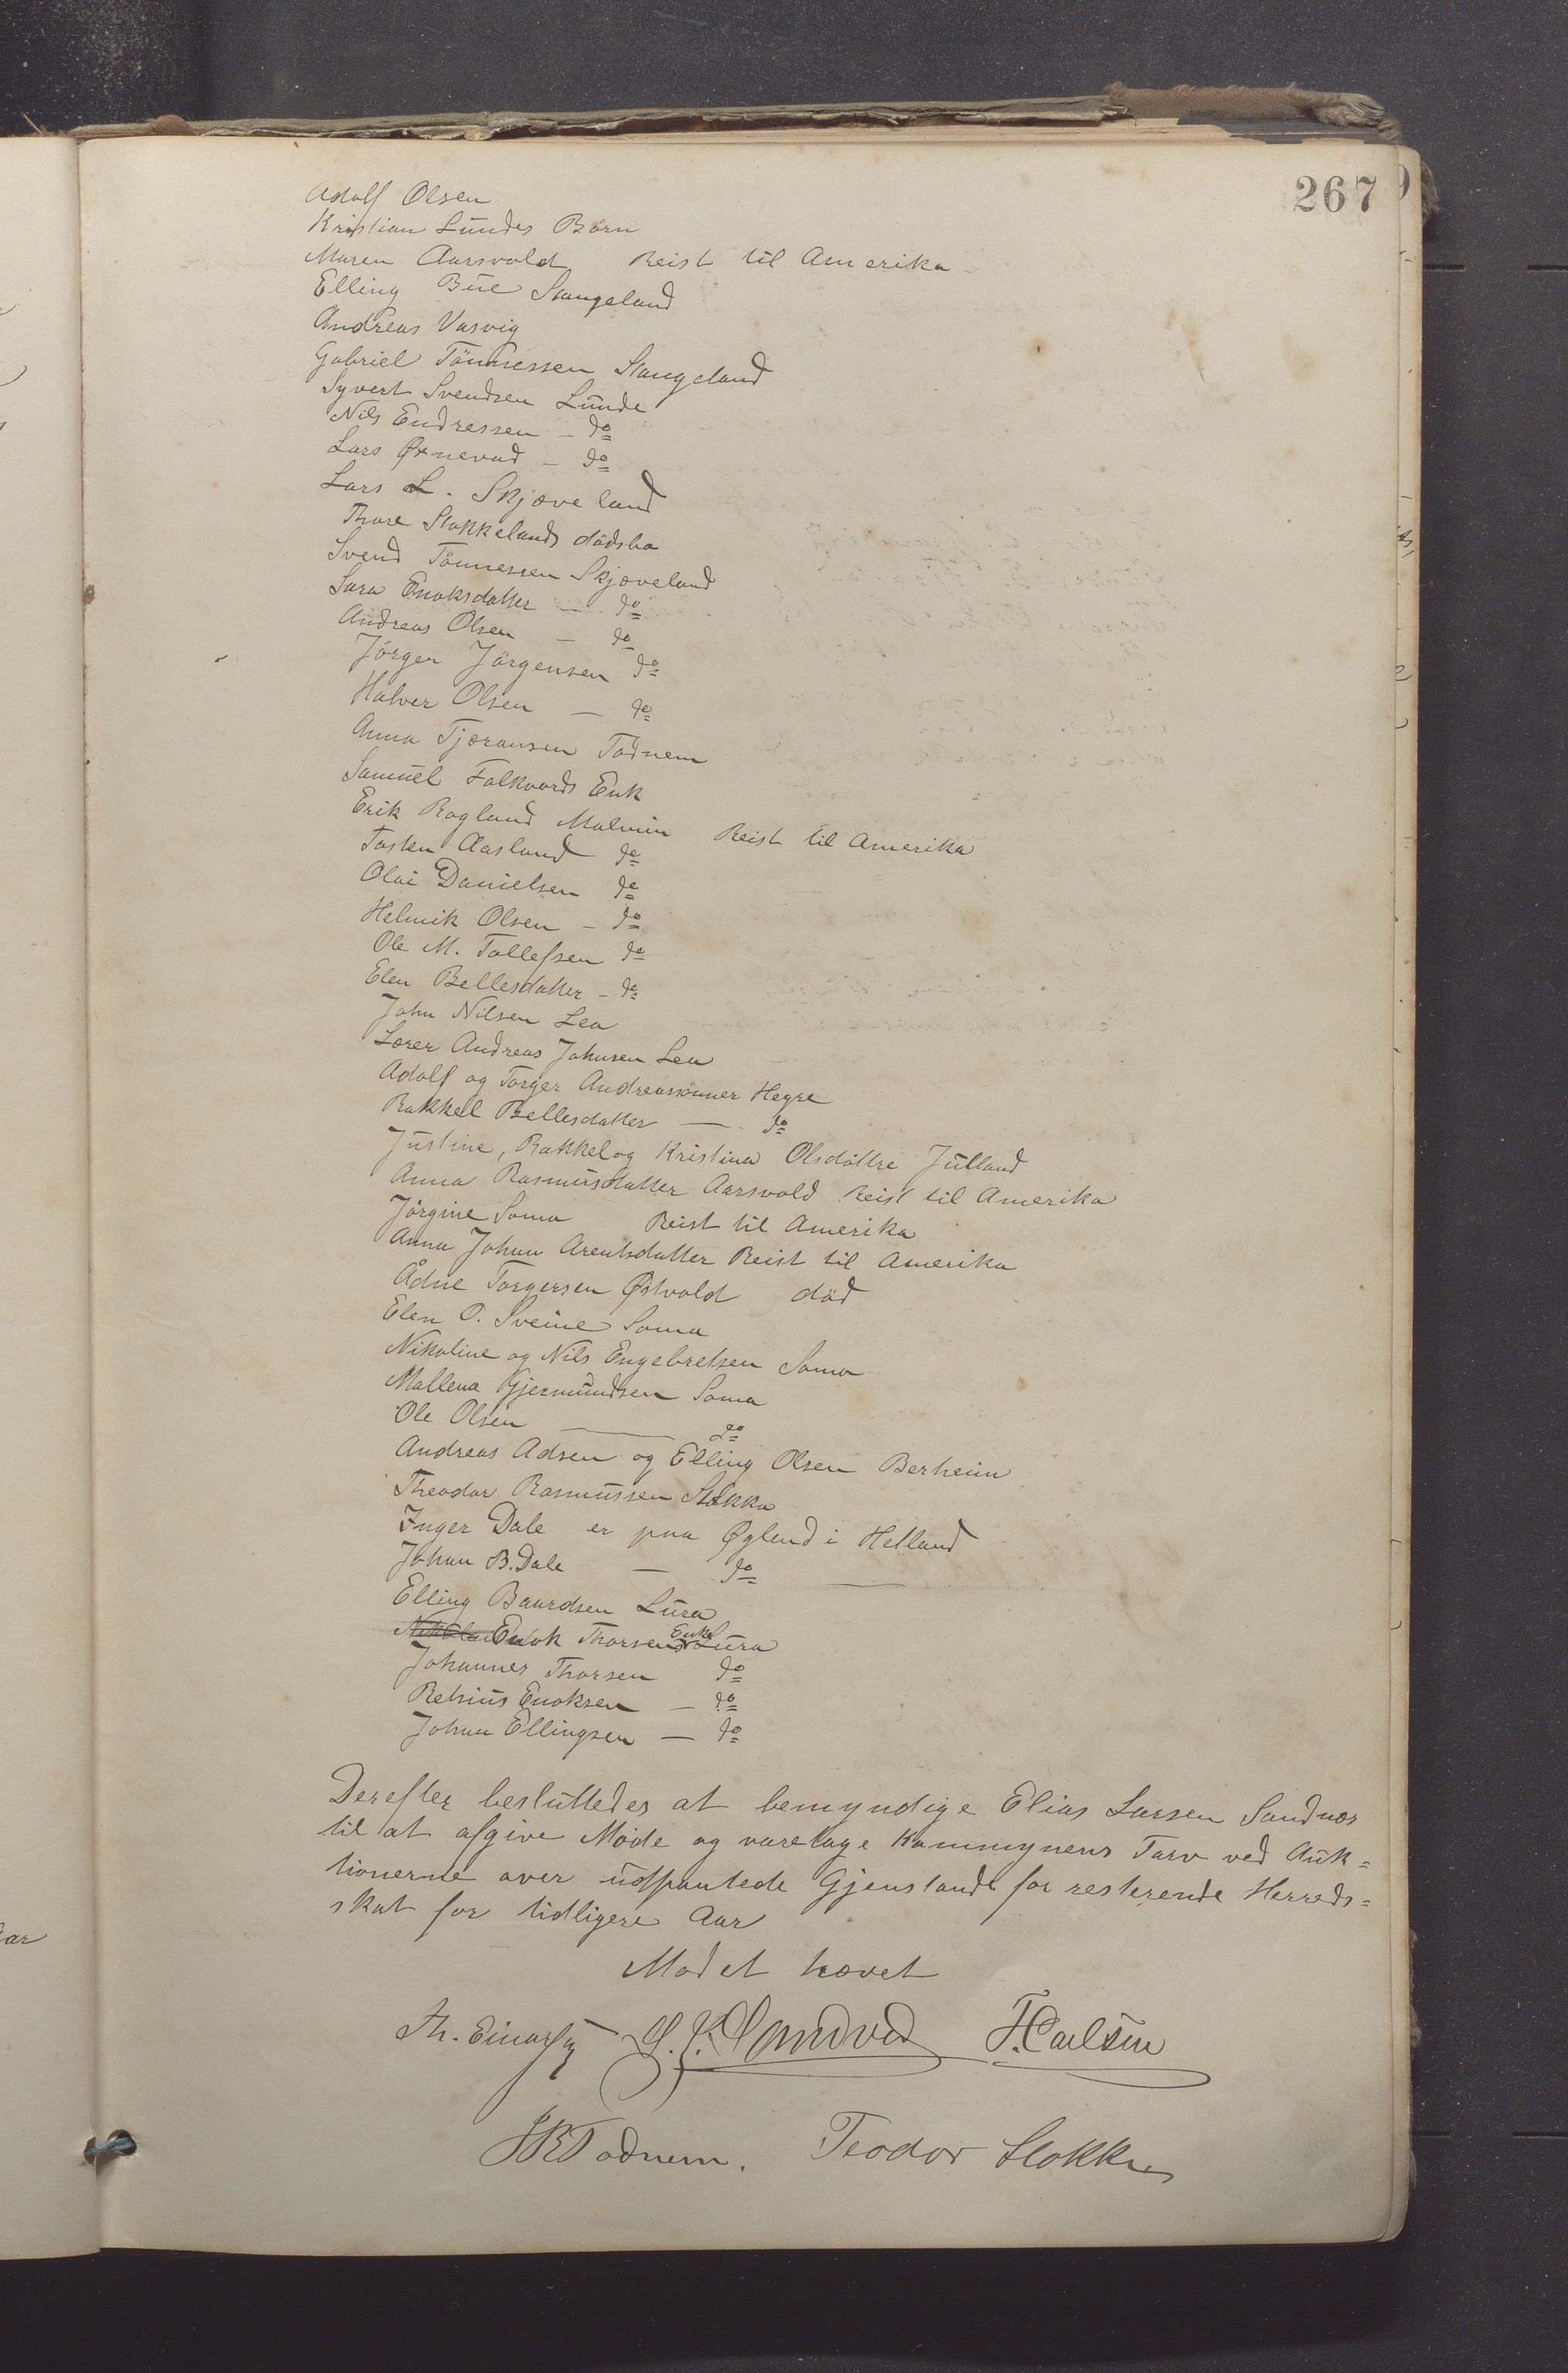 267
Adolf Olsen
Kristian Lundes Børn
Maren Aarsvold Reist til Amerika
Elling Bue Stangeland
Andreas Vasvig
Gabriel Tönnessen Stangeland
Syvert Svendsen Lunde
Nils Endressen - do
Lars Ørnevad - do
Lars L. Skjæveland
Thore Stokkelands dödsbo
Svend Tönnessen Skjæveland
Sara Enoksdatter - do
Andreas Olsen - do
Jörgen Jörgensen do
Halver Olsen - do
Anna Tjöransen Todnem
Samuel Folkvords Enk
Erik Rogland Malmin Reist til Amerika
Tosten Aasland do
Olai Danielsen do
Helmik Olsen - do
Ole M. Tollefsen do
Elen Bellesdatter - do
John Nilsen Lea
Lærer Andreas Johnsen Lea
Adolf og Torger Andreassönner Hegre
Rakkel Bellesdatter - do
Justine, Rakkel og Kristina Olsdöttre Julland
Anna Rasmusdatter Aarsvold Reist til Amerika
Jörgine Soma Reist til Amerika
Anna Johan Arentsdatter Reist til Amerika
Ådne Torgersen Østvold död
Elen O. Sveine Soma
Nikoline og Nils Engebretsen Soma
Mallena Gjermundsen Soma
Ole Olsen - do
Andreas Adsen og Elling Olsen Berheim
Theodor Rasmussen Stokka
Inger Dale er paa Øglend i Helland
Johan B. Dale - do -
Elling Baardsen Lura
Nikolai Enok Thorsens Enke Lura
Johannes Thorsen do
Rehius Enoksen - do
Johan Ellingsen - do
Derefter besluttedes at bemyndige Elias Larsen Sandnæs
til at afgive Möde og varetage Kommynens Tarv ved Auk=
tionerne over udpantede Gjenstande for resterende Herreds=
skat for tidligere Aar
Mödet hævet
Th. Einarsen L. K. Sandved T. Carlsen
J R Todnem. Teodor Stokke